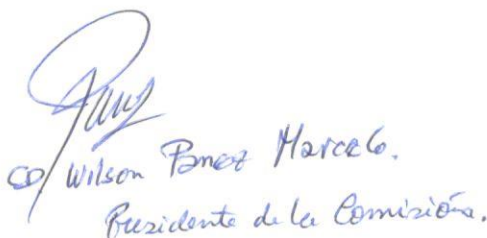 Wilson Panez Marcelo.
Presidente de la Comisión.